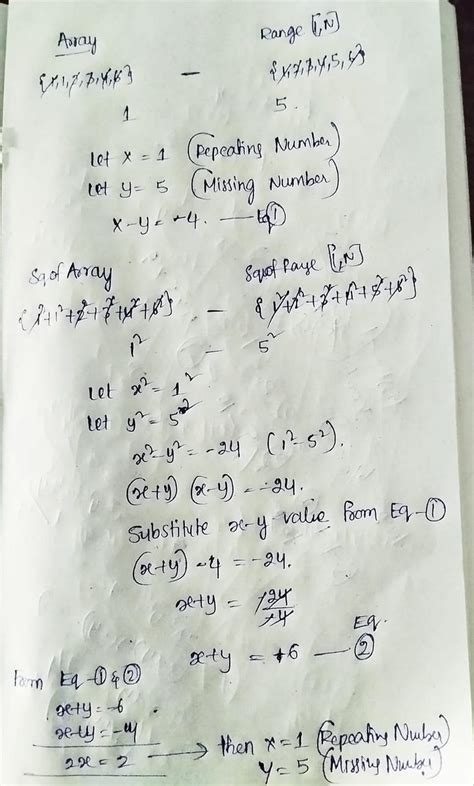 Array Range [1,N]
{1,1,2,3,4,6} - {1,2,3,4,5,6}
1 5.
Let x = 1 (Repeating Number)
Let y = 5 (Missing Number)
x-y = -4. — Eq ①
Sq of Array Sq of Range [1,N]
{1²+1²+2²+3²+4²+6²} - {1²+2²+3²+4²+5²+6²}
1² - 5²
Let x² = 1²
Let y² = 5²
x²-y² = -24 (1²-5²).
(x+y) (x-y) = -24.
Substitute x-y value from Eq-①
(x+y) -4 = -24.
x+y = -24/-4
x+y = +6 — Eq. ②
From Eq-① & ②
x+y = 6
x-y = -4
2x = 2 → then x=1 (Repeating Number)
y = 5 (Missing Number)